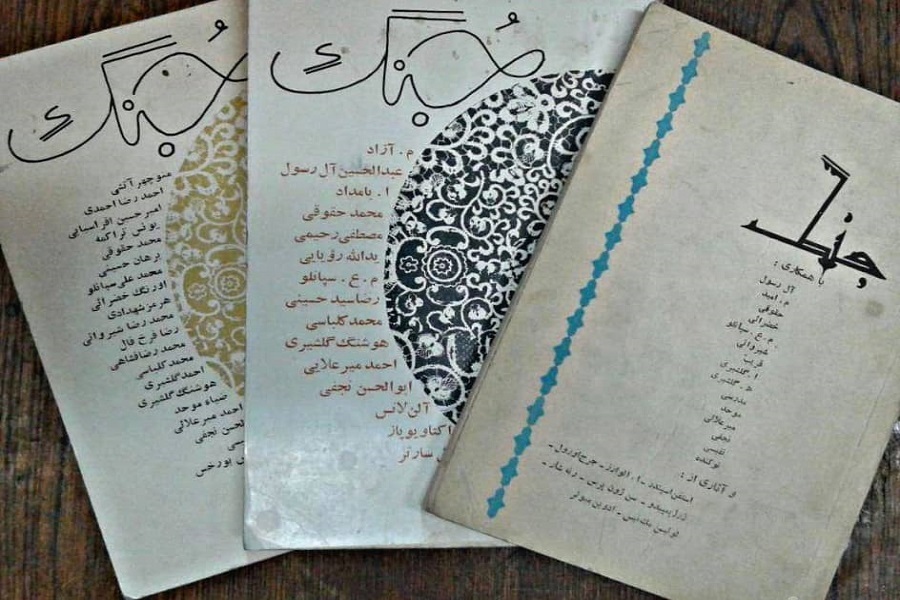 جُنگ
منوچهر آتشی
احمد رضا احمدی
امیر حسین افراسیابی
یونس تراکمه
محمد حقوقی
برهان حسینی
محمد علی سپانلو
اورنگ خضرائی
هرمز شهدادی
محمد رضا شیروانی
رضا فرخ فال
محمد رضا قشاهی
محمد کلباسی
احمد گلشیری
هوشنگ گلشیری
ضیاء موحد
احمد میرعلائی
نجفی
بورخس
جُنگ
م . آزاد
عبدالحسین آل رسول
ا . بامداد
محمد حقوقی
مصطفی رحیمی
یدالله رؤیایی
م . ع . سپانلو
رضا سید حسینی
محمد کلباسی
هوشنگ گلشیری
احمد میرعلایی
ابوالحسن نجفی
آلن لانس
اکتاویو پاز
سارتر
جُنگ
با همکاری :
آل رسول
م . امید
حقوقی
خضرائی
م . ع . سپانلو
شیروانی
فریب
ا . گلشیری
ه . گلشیری
مدرسی
موحد
میرعلائی
نجفی
نفیسی
نوکنده
و آثاری از :
استفن اسپندر - ا . الوارز - جرج اورول -
سن ژون پرس - رنه شار -
ادوین میوئر